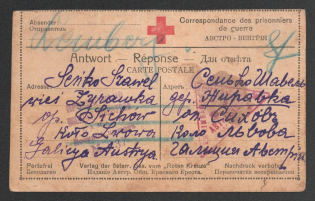 Absender
Отправитель
Correspondance des prisonniers
de guerre
АВСТРО - ВЕНГРІЯ
Lemberg
Antwort — Réponse — Для отвѣта
CARTE POSTALE
Adresse:
Seńko Szawel
wieś Żyrawka
op. Sichów
koło Lwowa
Galicya Austrya
Адресъ:
Сенько Шавель
дер. Жиравка
оп. Сиховъ
коло Львова
Галиция Австрия
Portofrei
Безплатно
Verlag der Österr. Ges. vom „Roten Kreuze“
Изданіе Австр. Общ. Краснаго Креста.
Nachdruck verboten
Перепечатка воспрещается